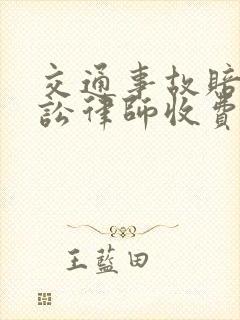 交通事故赔
讼律师收费
王蓝田